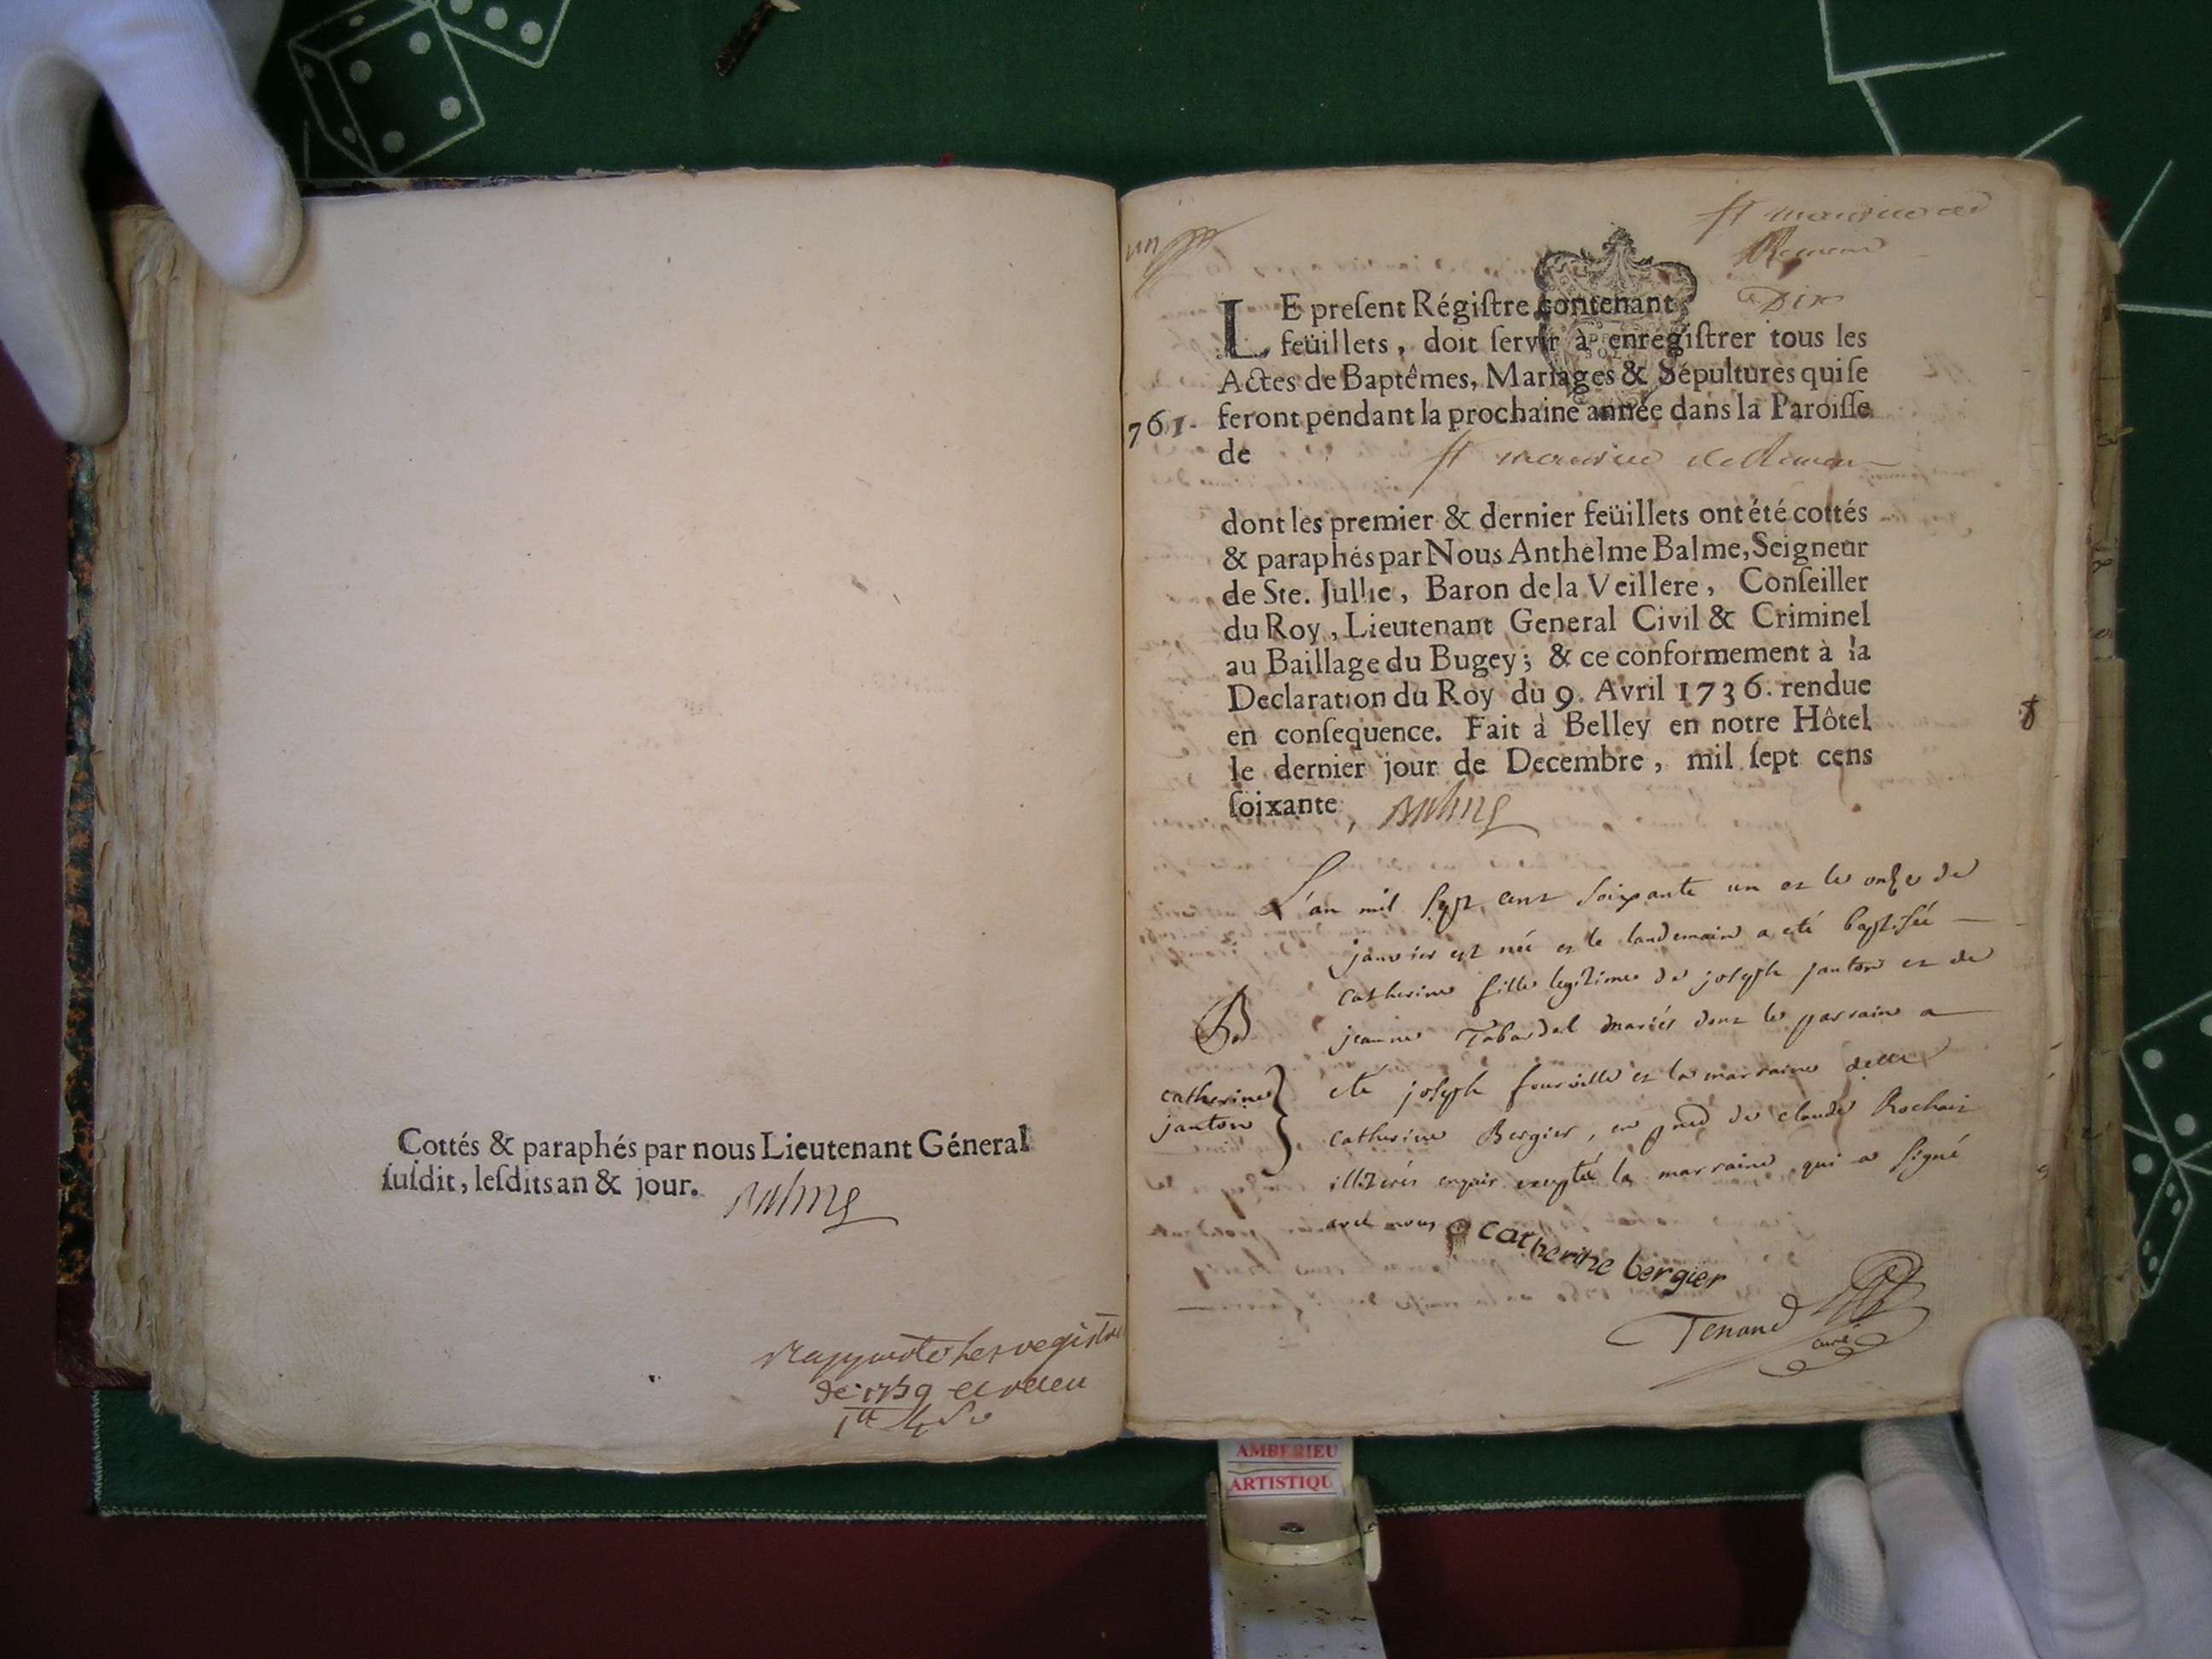 Cottés & paraphés par nous Lieutenant Géneral
ſuſdit, leſdits an & jour. Balme
de 1759
un
st maurice de
Remens
LE preſent Régiſtre contenant Dix
feüillets, doit ſervir à enregiſtrer tous les
Actes de Baptêmes, Mariages & Sépultures qui ſe
761. feront pendant la prochaine année dans la Paroiſſe
de st maurice de Remens
dont les premier & dernier feüillets ont été cottés
& paraphés par Nous Anthelme Balme, Seigneur
de Ste. Jullie, Baron de la Veillere, Conſeiller
du Roy, Lieutenant General Civil & Criminel
au Baillage du Bugey; & ce conformement à la
Declaration du Roy du 9. Avril 1736. rendue
en conſequence. Fait à Belley en notre Hôtel
le dernier jour de Decembre, mil ſept cens
ſoixante, Balme
L'an mil sept cent soixante un et le onze de
janvier est née et le landemain a eté baptisée
catherine fille legitime de joseph janton et de
B
jeanne Tabardel mariés dont le parrain a
catherine
janton
eté joseph fourville et la marraine delle
catherine Bergier, en pnce de claude Rochaix
illiterés enquis exceptée la marraine qui a signé
avec nous catherine bergier
Tenand curé
AMBERIEU
ARTISTIQU